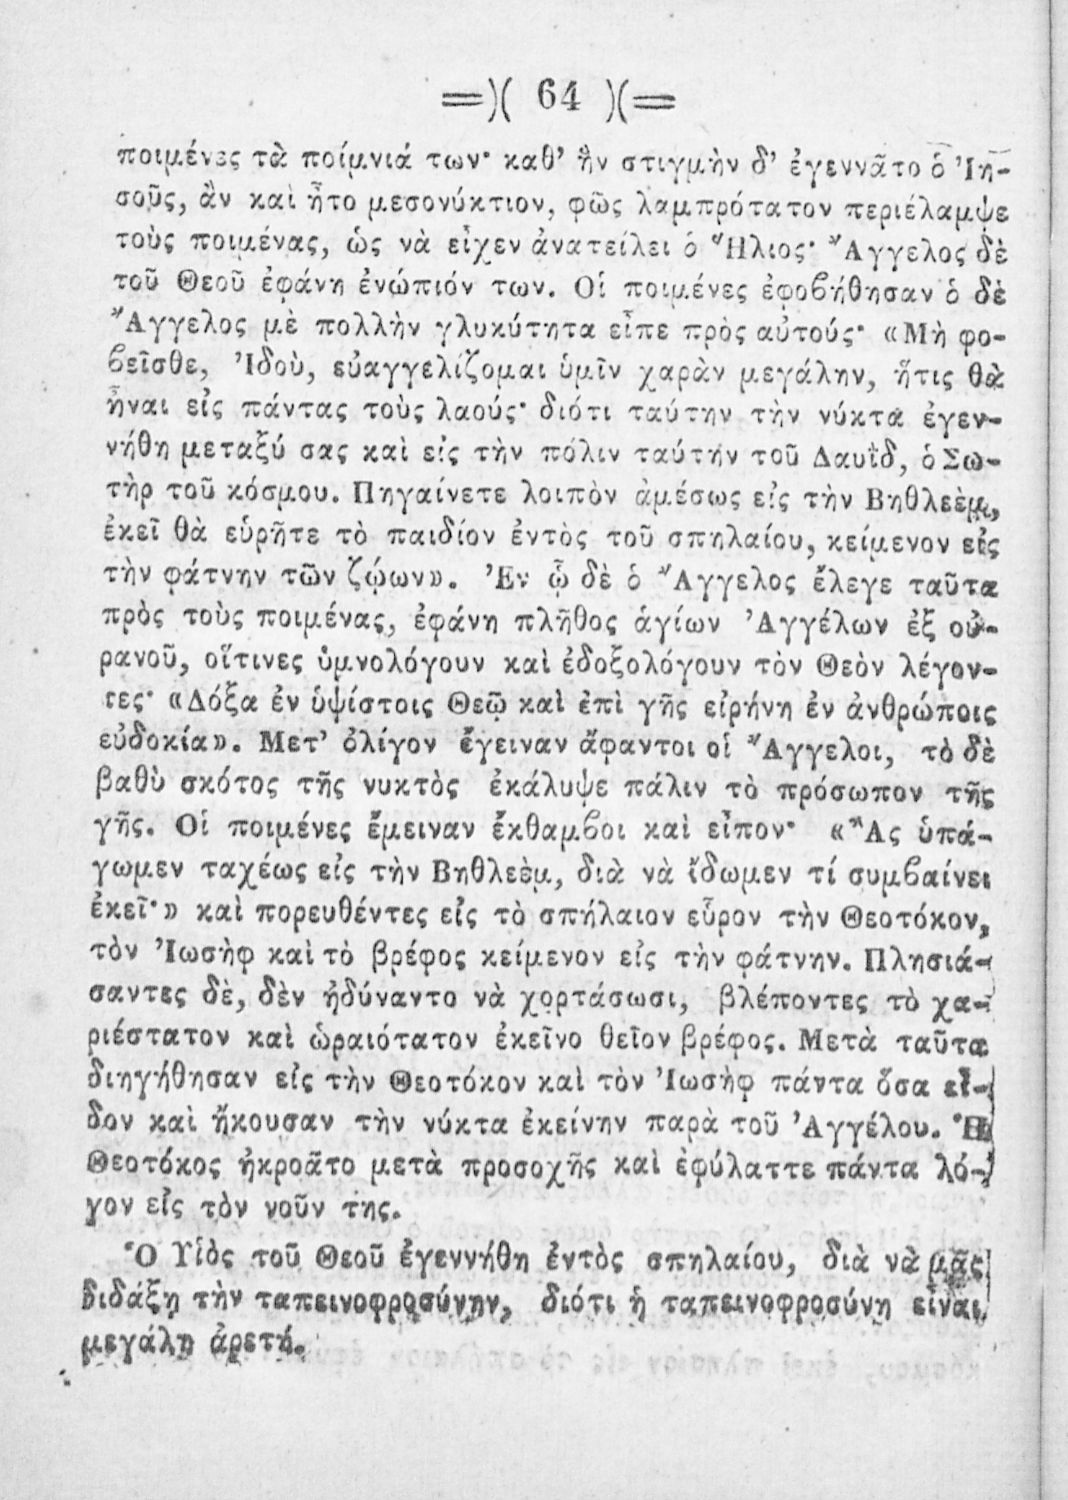 =)( 64 )(=
ποιμένες τὰ ποίμνιά των· καθ’ ἣν στιγμὴν δ’ ἐγεννᾶτο ὁ Ἰη-
σοῦς, ἂν καὶ ἦτο μεσονύκτιον, φῶς λαμπρότατον περιέλαμψε
τοὺς ποιμένας, ὡς νὰ εἶχεν ἀνατείλει ὁ Ἥλιος· Ἄγγελος δὲ
τοῦ Θεοῦ ἐφάνη ἐνώπιόν των. Οἱ ποιμένες ἐφοβήθησαν ὁ δὲ
Ἄγγελος μὲ πολλὴν γλυκύτητα εἶπε πρὸς αὐτούς· «Μὴ φο-
βεῖσθε, Ἰδοὺ, εὐαγγελίζομαι ὑμῖν χαρὰν μεγάλην, ἥτις θὰ
ἦναι εἰς πάντας τοὺς λαούς· διότι ταύτην τὴν νύκτα ἐγεν-
νήθη μεταξύ σας καὶ εἰς τὴν πόλιν ταύτην τοῦ Δαυῒδ, ὁ Σω-
τὴρ τοῦ κόσμου. Πηγαίνετε λοιπὸν ἀμέσως εἰς τὴν Βηθλεὲμ,
ἐκεῖ θὰ εὑρῆτε τὸ παιδίον ἐντὸς τοῦ σπηλαίου, κείμενον εἰς
τὴν φάτνην τῶν ζῴων». Ἐν ᾧ δὲ ὁ Ἄγγελος ἔλεγε ταῦτα
πρὸς τοὺς ποιμένας, ἐφάνη πλῆθος ἁγίων Ἀγγέλων ἐξ οὐ-
ρανοῦ, οἵτινες ὑμνολόγουν καὶ ἐδοξολόγουν τὸν Θεὸν λέγον-
τες· «Δόξα ἐν ὑψίστοις Θεῷ καὶ ἐπὶ γῆς εἰρήνη ἐν ἀνθρώποις
εὐδοκία». Μετ’ ὀλίγον ἔγειναν ἄφαντοι οἱ Ἄγγελοι, τὸ δὲ
βαθὺ σκότος τῆς νυκτὸς ἐκάλυψε πάλιν τὸ πρόσωπον τῆς
γῆς. Οἱ ποιμένες ἔμειναν ἔκθαμβοι καὶ εἶπον· «Ἂς ὑπά-
γωμεν ταχέως εἰς τὴν Βηθλεὲμ, διὰ νὰ ἴδωμεν τί συμβαίνει
ἐκεῖ·» καὶ πορευθέντες εἰς τὸ σπήλαιον εὗρον τὴν Θεοτόκον,
τὸν Ἰωσὴφ καὶ τὸ βρέφος κείμενον εἰς τὴν φάτνην. Πλησιά-
σαντες δὲ, δὲν ἠδύναντο νὰ χορτάσωσι, βλέποντες τὸ χα-
ριέστατον καὶ ὡραιότατον ἐκεῖνο θεῖον βρέφος. Μετὰ ταῦτα
διηγήθησαν εἰς τὴν Θεοτόκον καὶ τὸν Ἰωσὴφ πάντα ὅσα εἶ-
δον καὶ ἤκουσαν τὴν νύκτα ἐκείνην παρὰ τοῦ Ἀγγέλου. Ἡ
Θεοτόκος ἠκροᾶτο μετὰ προσοχῆς καὶ ἐφύλαττε πάντα λό-
γον εἰς τὸν νοῦν της.
Ὁ Υἱὸς τοῦ Θεοῦ ἐγεννήθη ἐντὸς σπηλαίου, διὰ νὰ μᾶς
διδάξῃ τὴν ταπεινοφροσύνην, διότι ἡ ταπεινοφροσύνη εἶναι
μεγάλη ἀρετή.